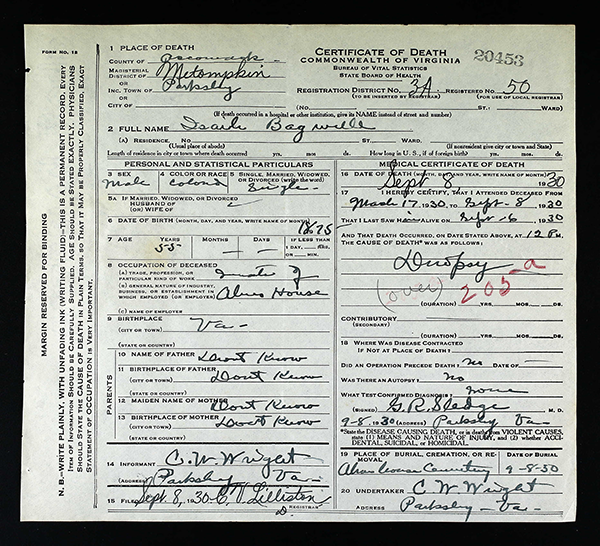 FORM NO. 18
MARGIN RESERVED FOR BINDING
N. B.—WRITE PLAINLY, WITH UNFADING INK (WRITING FLUID)—THIS IS A PERMANENT RECORD. EVERY
ITEM OF INFORMATION SHOULD BE CAREFULLY SUPPLIED. AGE SHOULD BE STATED EXACTLY. PHYSICIANS
SHOULD STATE THE CAUSE OF DEATH IN PLAIN TERMS, SO THAT IT MAY BE PROPERLY CLASSIFIED. EXACT
STATEMENT OF OCCUPATION IS VERY IMPORTANT.
1 PLACE OF DEATH
COUNTY OF
MAGISTERIAL
DISTRICT OF Metompkin
OR
INC. TOWN OF Parksley
OR
CITY OF
CERTIFICATE OF DEATH
COMMONWEALTH OF VIRGINIA
BUREAU OF VITAL STATISTICS
STATE BOARD OF HEALTH
20453
REGISTRATION DISTRICT NO. 3A REGISTERED NO. 50
(TO BE INSERTED BY REGISTRAR) (FOR USE OF LOCAL REGISTRAR)
(No. St., WARD)
(If death occurred in a hospital or other institution, give its NAME instead of street and number)
2 FULL NAME Bagwell
(A) RESIDENCE. NO. ST. WARD
(Usual place of abode) (If nonresident give city or town and State)
Length of residence in city or town where death occurred yrs. mos. ds. How long in U. S., if of foreign birth? yrs. mos. ds.
PERSONAL AND STATISTICAL PARTICULARS
3 SEX
Male
4 COLOR OR RACE
colored
5 SINGLE, MARRIED, WIDOWED,
OR DIVORCED (write the word)
Single
5A IF MARRIED, WIDOWED, OR DIVORCED
HUSBAND OF
(OR) WIFE OF
6 DATE OF BIRTH (MONTH, DAY, AND YEAR, WRITE NAME OF MONTH)
1875
7 AGE YEARS MONTHS DAYS IF LESS THAN
1 day, hrs.
or min.
55 — —
8 OCCUPATION OF DECEASED
(A) TRADE, PROFESSION, OR
PARTICULAR KIND OF WORK Inmate of
(B) GENERAL NATURE OF INDUSTRY,
BUSINESS, OR ESTABLISHMENT IN
WHICH EMPLOYED (OR EMPLOYER) Alms House
(C) NAME OF EMPLOYER
9 BIRTHPLACE
(CITY OR TOWN) Va-
(STATE OR COUNTRY)
PARENTS
10 NAME OF FATHER Dont Know
11 BIRTHPLACE OF FATHER
(CITY OR TOWN) Dont Know
(STATE OR COUNTRY)
12 MAIDEN NAME OF MOTHER
Dont Know
13 BIRTHPLACE OF MOTHER
(CITY OR TOWN) Dont Know
(STATE OR COUNTRY)
14 INFORMANT C. W. Wright
(Address) Parksley Va-
15 FILED Sept. 8, 1930
Lilliston
REGISTRAR
MEDICAL CERTIFICATE OF DEATH
16 DATE OF DEATH (MONTH, DAY, AND YEAR, WRITE NAME OF MONTH)
Sept. 8, 1930
17 I HEREBY CERTIFY, THAT I ATTENDED DECEASED FROM
March 17, 1930, TO Sept-8, 1930
THAT I LAST SAW HIM ALIVE ON Sept-6, 1930
AND THAT DEATH OCCURRED, ON DATE STATED ABOVE, AT 12 P.M.
THE CAUSE OF DEATH* WAS AS FOLLOWS:
Dropsy
(over) 205-a
(DURATION) YRS. MOS. DS.
CONTRIBUTORY
(SECONDARY)
(DURATION) YRS. MOS. DS.
18 WHERE WAS DISEASE CONTRACTED
IF NOT AT PLACE OF DEATH?
DID AN OPERATION PRECEDE DEATH? No DATE OF —
WAS THERE AN AUTOPSY? No
WHAT TEST CONFIRMED DIAGNOSIS? none
(SIGNED) G. R. Sledge M. D.
9-8, 1930 (ADDRESS) Parksley Va-
*State the DISEASE CAUSING DEATH, or in deaths from VIOLENT CAUSES,
state (1) MEANS AND NATURE OF INJURY, and (2) whether ACCI-
DENTAL, SUICIDAL, or HOMICIDAL.
19 PLACE OF BURIAL, CREMATION, OR RE- DATE OF BURIAL
MOVAL
Almshouse Cemetery 9-8-30
20 UNDERTAKER C W Wright
ADDRESS Parksley - Va-